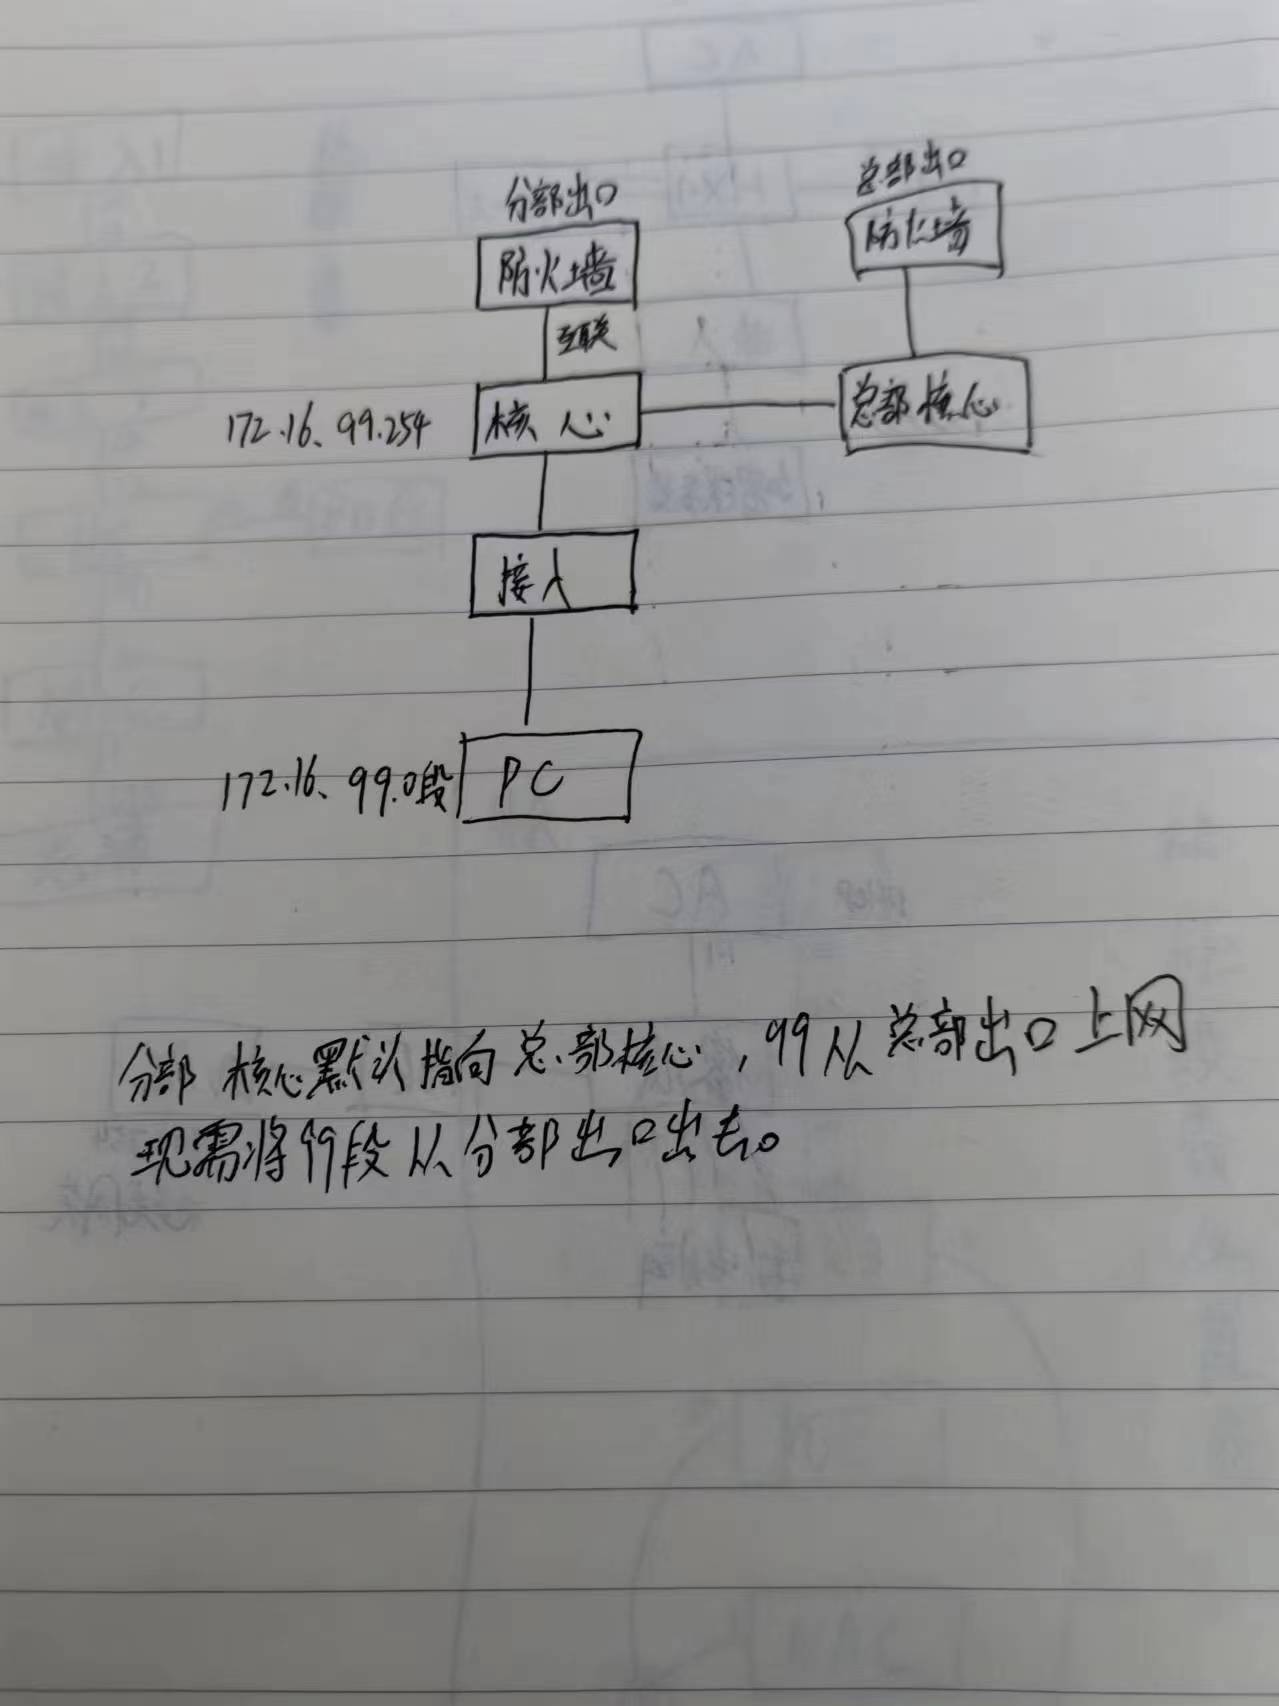 分部出口
总部出口
防火墙
防火墙
互联
172.16、99.254
核心
总部核心
接入
172.16、99.0段
PC
分部核心默认指向总部核心,99从总部出口上网
现需将99段从分部出口出去。